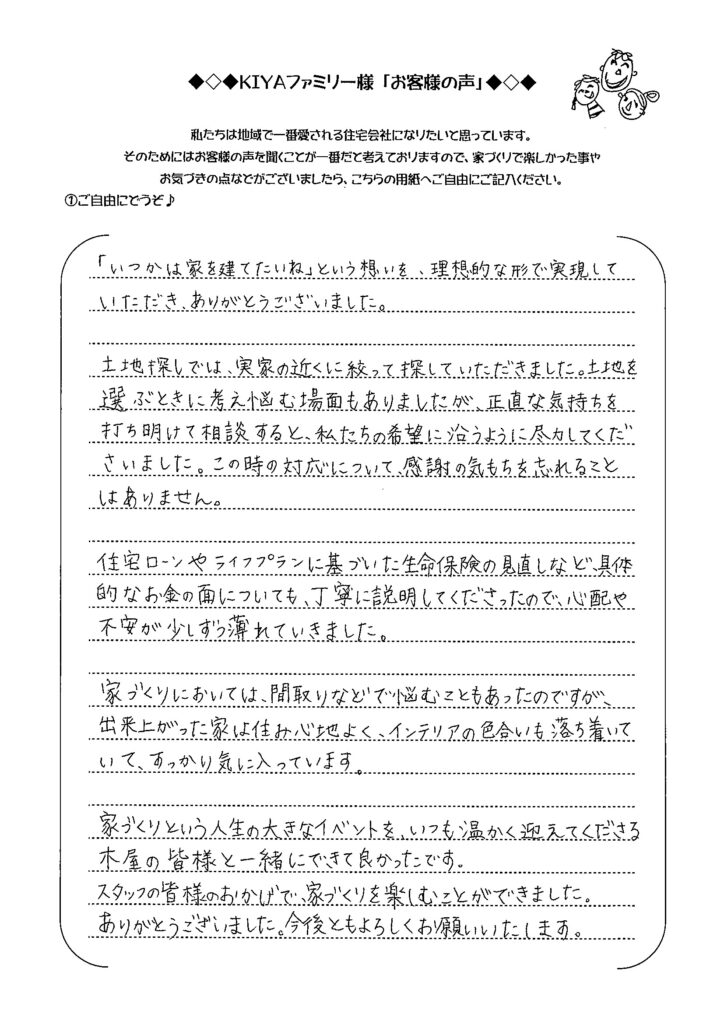 ◆◇◆KIYAファミリー様「お客様の声」◆◇◆
私たちは地域で一番愛される住宅会社になりたいと思っています。
そのためにはお客様の声を聞くことが一番だと考えておりますので、家づくりで楽しかった事や
お気づきの点などがございましたら、こちらの用紙へご自由にご記入ください。
①ご自由にどうぞ♪
「いつかは家を建てたいね」という想いを、理想的な形で実現して
いただき、ありがとうございました。
土地探しでは、実家の近くに絞って探していただきました。土地を
選ぶときに考え悩む場面もありましたが、正直な気持ちを
打ち明けて相談すると、私たちの希望に沿うように尽力してくだ
さいました。この時の対応について、感謝の気もちを忘れること
はありません。
住宅ローンやライフプランに基づいた生命保険の見直しなど、具体
的なお金の面についても、丁寧に説明してくださったので、心配や
不安が少しずつ薄れていきました。
家づくりにおいては、間取りなどで悩むこともあったのですが、
出来上がった家は住み心地よく、インテリアの色合いも落ち着いて
いて、すっかり気に入っています。
家づくりという人生の大きなイベントを、いつも温かく迎えてくださる
木屋の皆様と一緒にできて良かったです。
スタッフの皆様のおかげで、家づくりを楽しむことができました。
ありがとうございました。今後ともよろしくお願いいたします。